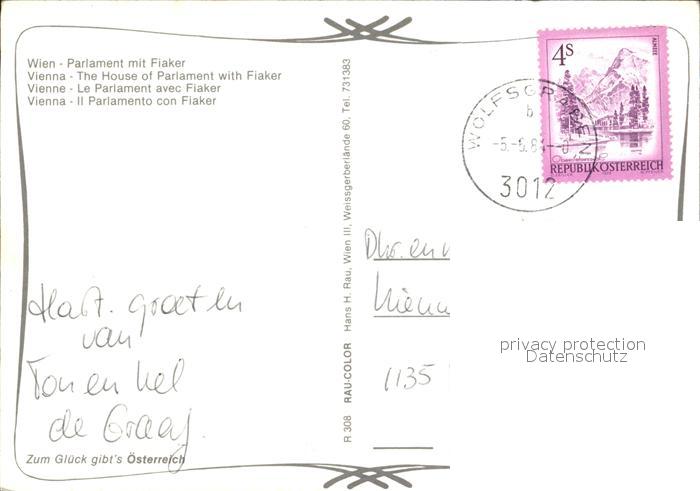 Wien - Parlament mit Fiaker
Vienna - The House of Parliament with Fiaker
Vienne - Le Parlament avec Fiaker
Vienna - Il Parlamento con Fiaker
Hart. groeten
van
Ton en Nel
de Graaf.
Zum Glück gibt's Österreich
R 308 RAU-COLOR Hans H. Rau, Wien III, Weissgerberlände 60, Tel. 731383
WOLFSGRABEN
b
3012
4S
ALMSEE
REPUBLIK ÖSTERREICH
Dhr. en
1135
privacy protection
Datenschutz